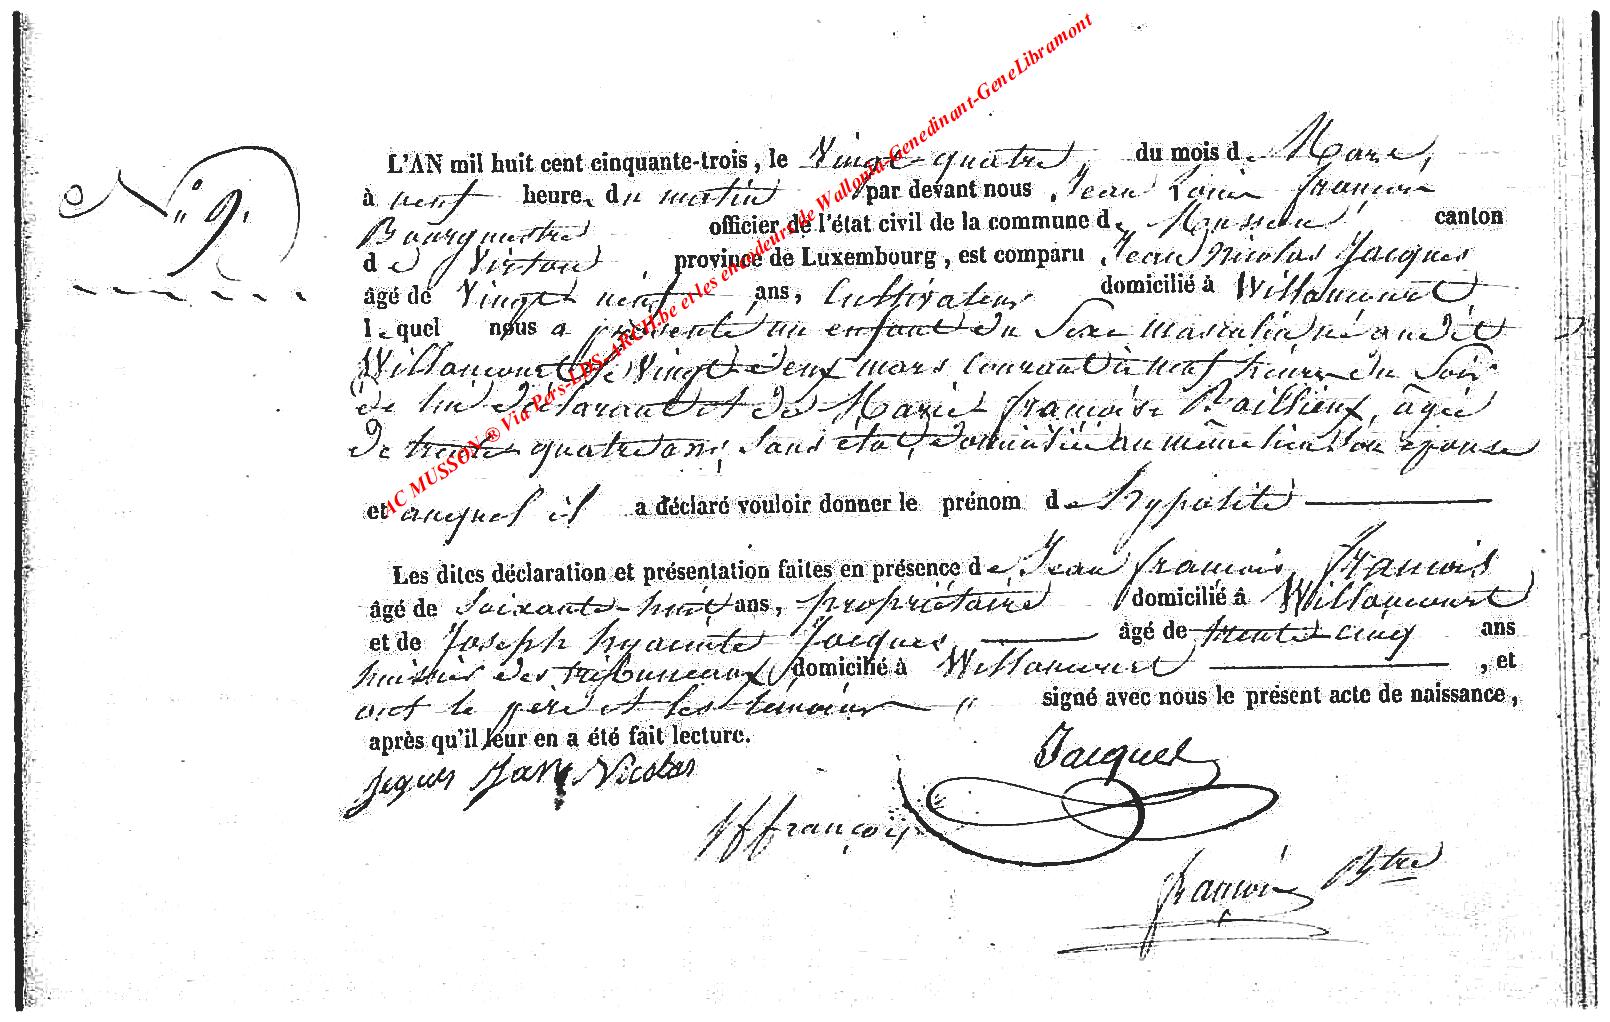 N° 9.
L'AN mil huit cent cinquante-trois, le Vingt quatre, du mois de Mars,
à neuf heures du matin par devant nous Jean Louis François
Bourgmestre officier de l'état civil de la commune de Musson canton
de Virton, province de Luxembourg, est comparu Jean Nicolas Jacques
âgé de Vingt neuf ans, Cultivateur domicilié à Willancourt
lequel nous a présenté un enfant du sexe masculin né au dit
Willancourt le Vingt deux mars courant à neuf heures du Soir
de lui déclarant et de Marie Françoise Baillieux, âgée
de trente quatre ans, sans état, domiciliée au même lieu son épouse
et auquel il a déclaré vouloir donner le prénom de Hypolite
Les dites déclaration et présentation faites en présence de Jean François François
âgé de soixante-huit ans, propriétaire domicilié à Willancourt
et de Joseph Hyacinte Jacques âgé de trente cinq ans
huissier des tribuneaux, domicilié à Willancourt, et
ont le père et les témoins signé avec nous le présent acte de naissance,
après qu'il leur en a été fait lecture.
Jacques
Nicolas
JfFrançois
François Bgtre
AC MUSSON ® Via Pers-LDS-ARCH.be et les encodeurs de Wallonia-Genedinant-GeneLibramont